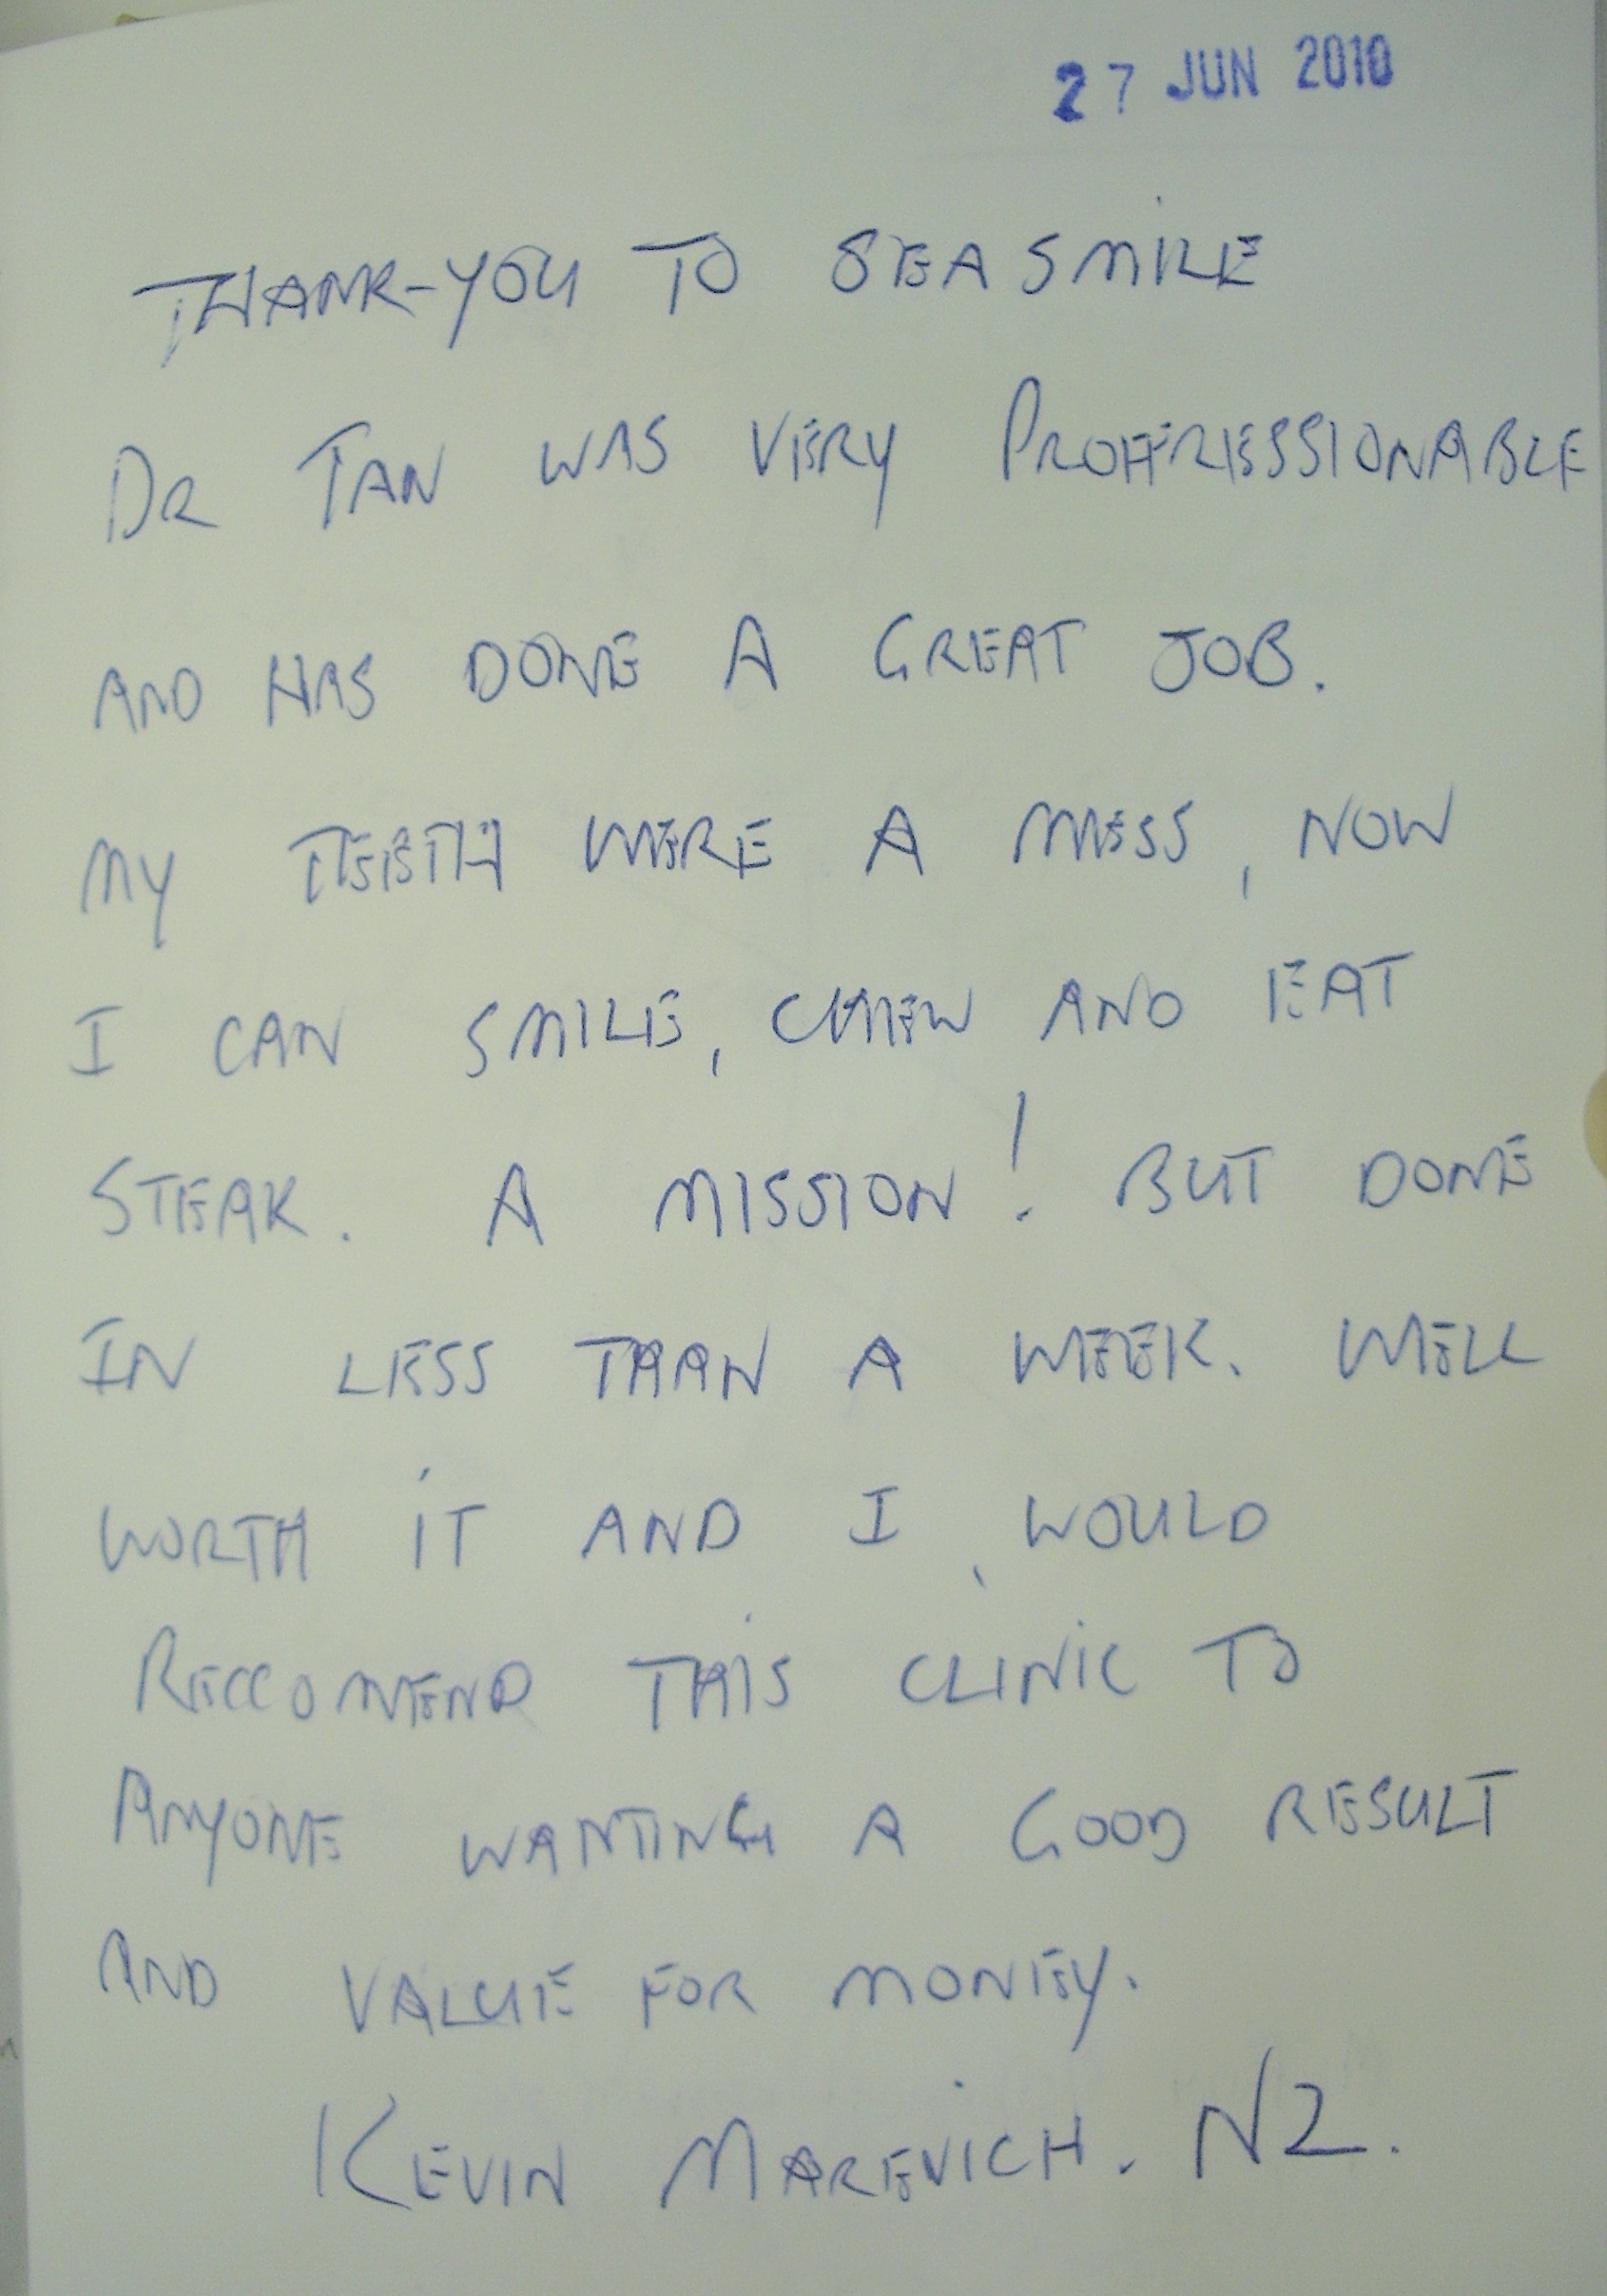 27 JUN 2010
THANK-YOU TO SEA SMILE
DR TAN WAS VERY PROFFRESSIONABLE
AND HAS DONE A GREAT JOB.
MY TEETH WERE A MESS, NOW
I CAN SMILE, CHEW AND EAT
STEAK. A MISSION! BUT DONE
IN LESS THAN A WEEK. WELL
WORTH IT AND I WOULD
RECCOMEND THIS CLINIC TO
ANYONE WANTING A GOOD RESULT
AND VALUE FOR MONEY.
KEVIN MAREVICH. NZ.